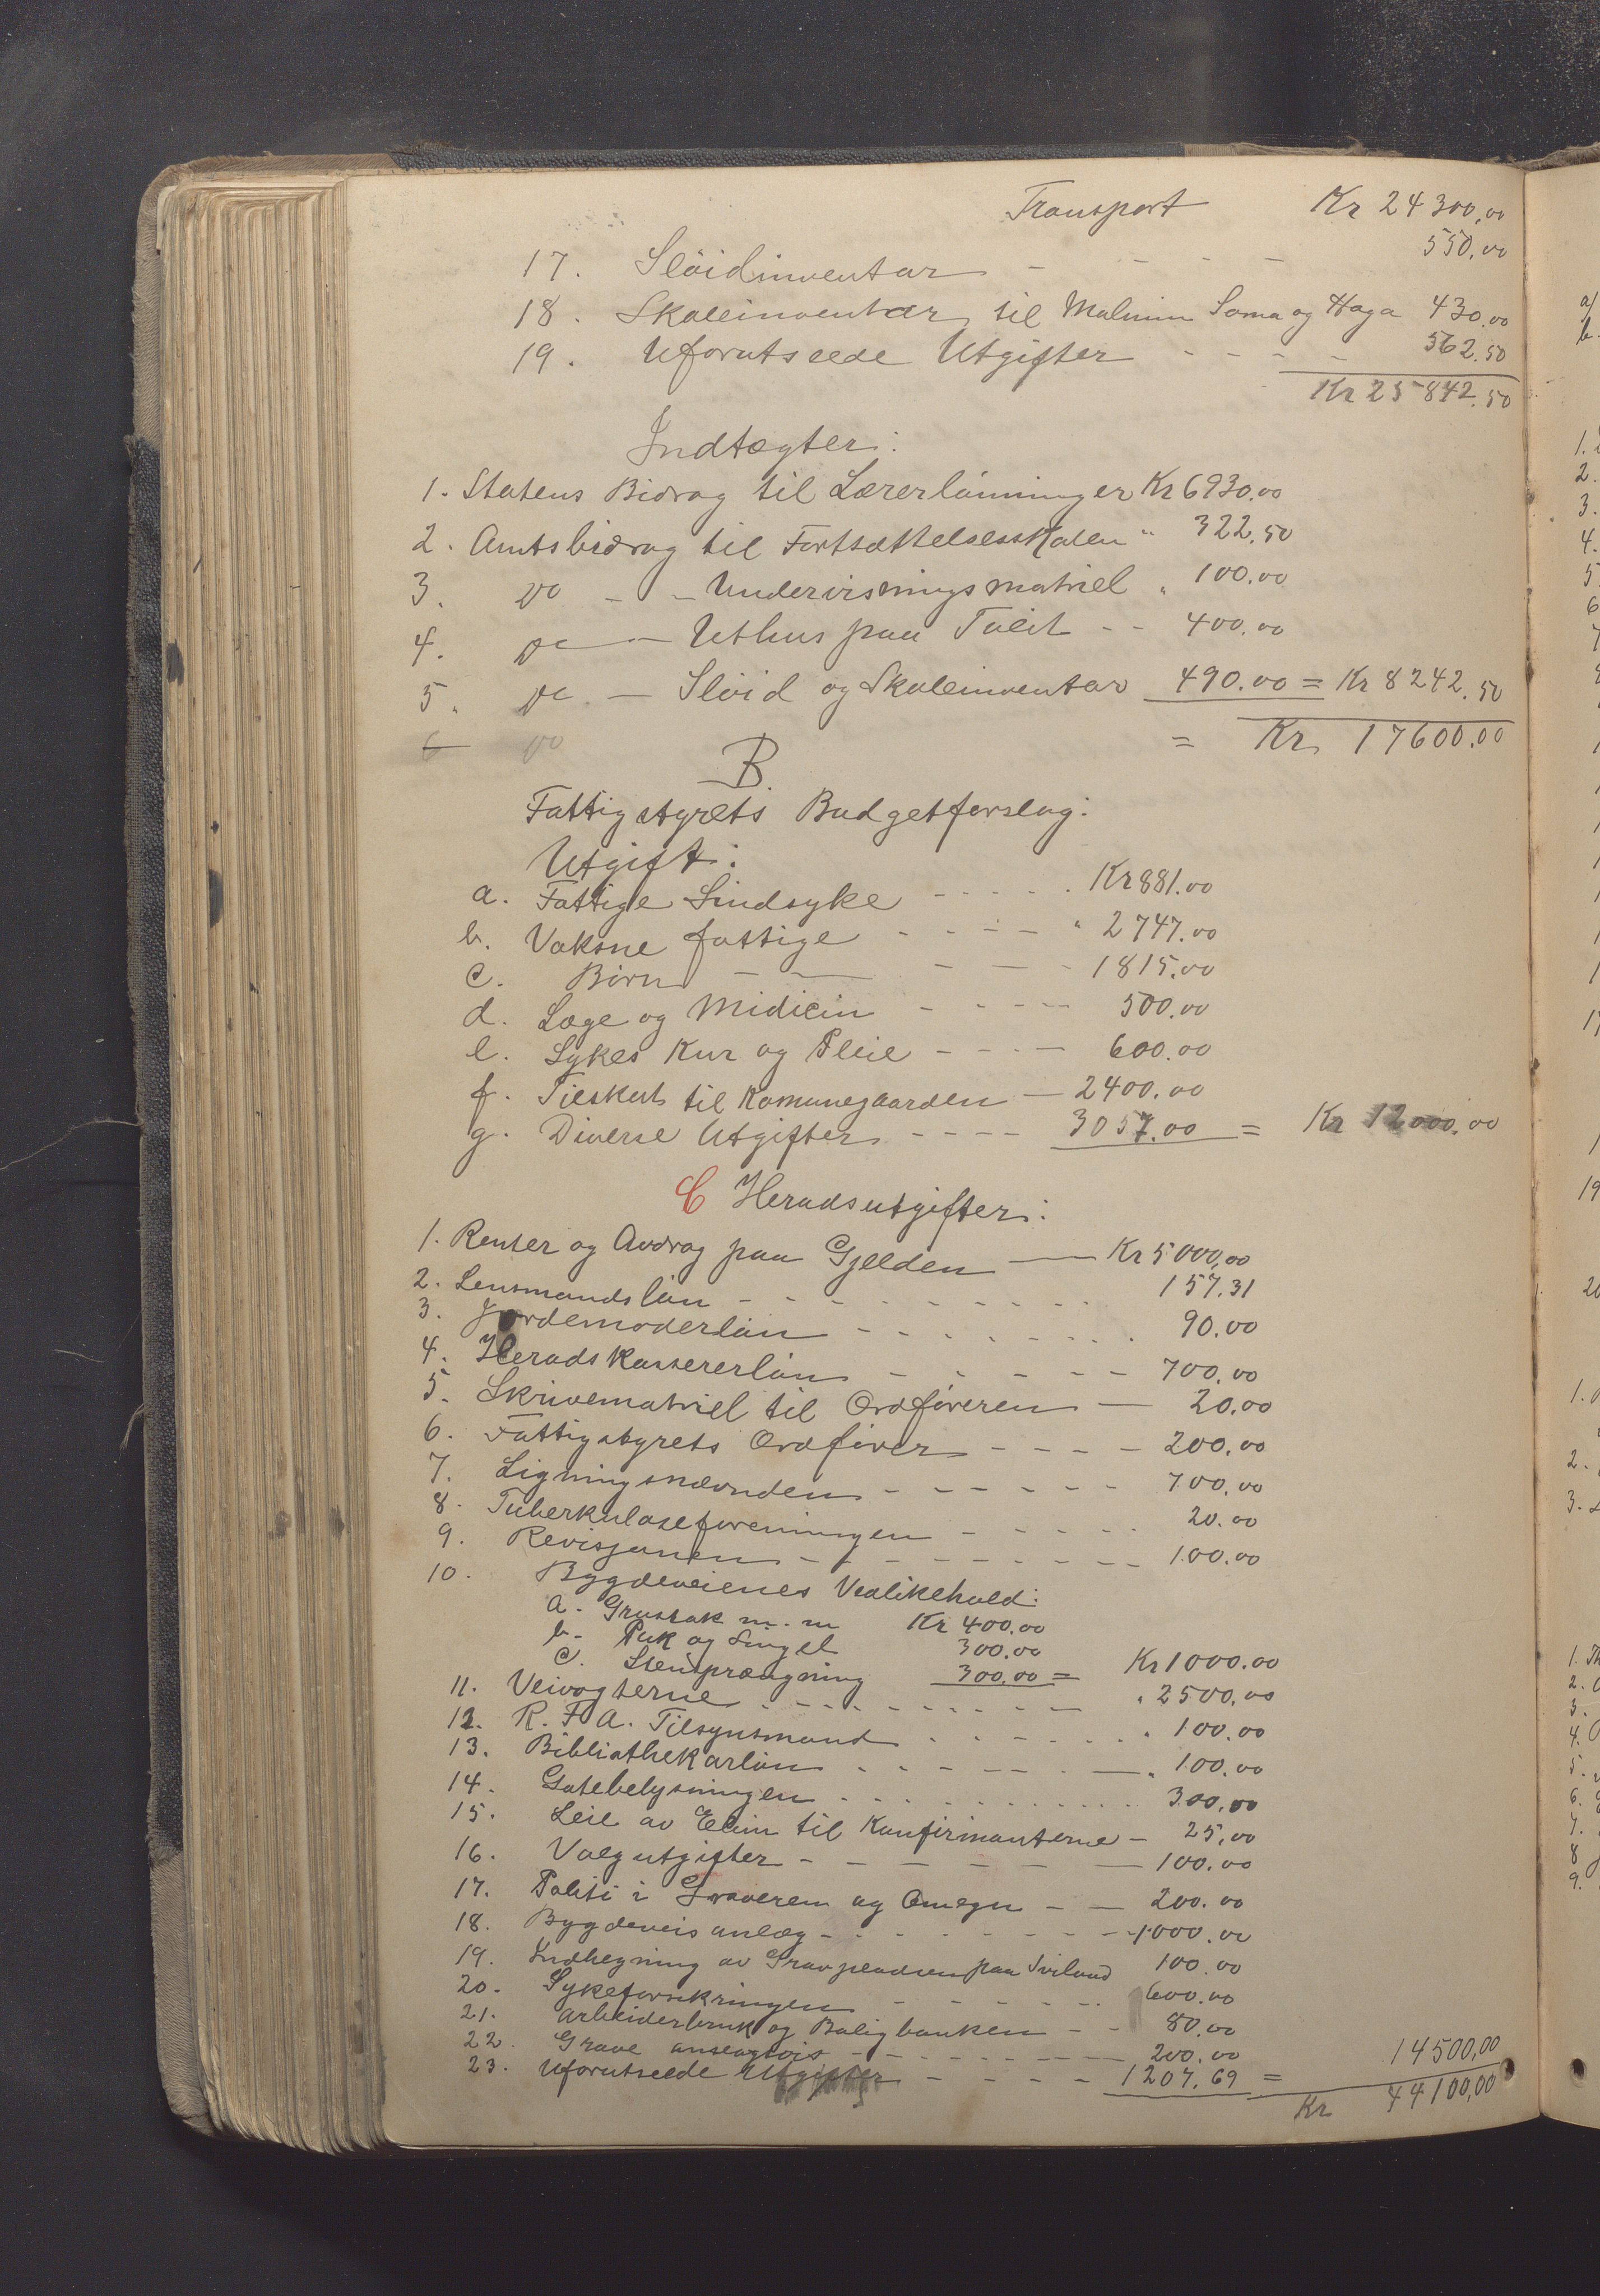 Transport Kr 24300,00
17. Slöidinventar - - - - 550,00
18. Skoleinventar til Malmin Soma og Haga 430,00
19. Uforutseede Utgifter - - - - 562.50
Kr 25842.50
Indtægter:
1. Statens Bidrag til Lærerlönninger Kr 6930.00
2. Amtsbidrag til Fortsættelsesskolen " 322,50
3. Do - - Undervisningsmatriel " 100.00
4. Do — Uthus paa - - 400.00
5. Do — Slöid og Skoleinventar 490.00 = Kr 8242.50
6 Do = Kr. 17600.00
B.
Fattigstyrets Budgetforslag:
Utgift:
a. Fattige Sindsyke - - - - Kr 881.00
b. Voksne fattige - - - - " 2747.00
c. Börn — — - — - 1815.00
d. Læge og Midicin - - - - 500.00
e. Sykes Kur og Pleie - - - 600.00
f. Tilskut til Komunegaarden — 2400.00
g. Diverse Utgifter - - - - 3057.00 = Kr 12000.00
C Heradsutgifter:
1. Renter og Avdrag paa Gjelden — Kr 5000,00
2. Lensmandslön - - - - - - 157.31
3. Jordemoderlön - - - - - - 90.00
4. Heradskassererlön - - - - - 700.00
5. Skrivematriel til Ordföreren — 20.00
6. Fattigstyrets Ordförer - - - - 200.00
7. Ligningsnævnden - - - - - - 700.00
8. Tuberkuloseforeningen - - - - - 20.00
9. Revisjonen - - - - - - - - 100.00
10. Bygdeveienes Vedlikehold:
a. Grustak m.m Kr 400.00
b. Puk og Singel 300.00
c. Stensprængning 300.00 = Kr 1000.00
11. Veivogterne - - - - - - - " 2500.00
12. R. F A. Tilsynsmand - - - - - " 100.00
13. Bibliothekarlön - - - - - — " 100.00
14. Gatebelysningen - - - - - - 300,00
15. Leie av Elim til Konfirmanterne - 25,00
16. Valgutgifter - - - - - — 100.00
17. Politi i Graveren og Omegn - — 200.00
18. Bygdeveisanlæg - - - - - - 1000.00
19. Indhegning av Gravpladsen paa Sviland 100.00
20. Sykeforsikringen - - - - - 600.00
21. Arbeiderbruk og Boligbanken - - 80.00
22. Grave - - - - - - - 200.00
23. Uforutseede Utgifter - - - - 1207.69 = 14500,00
Kr 44100,00